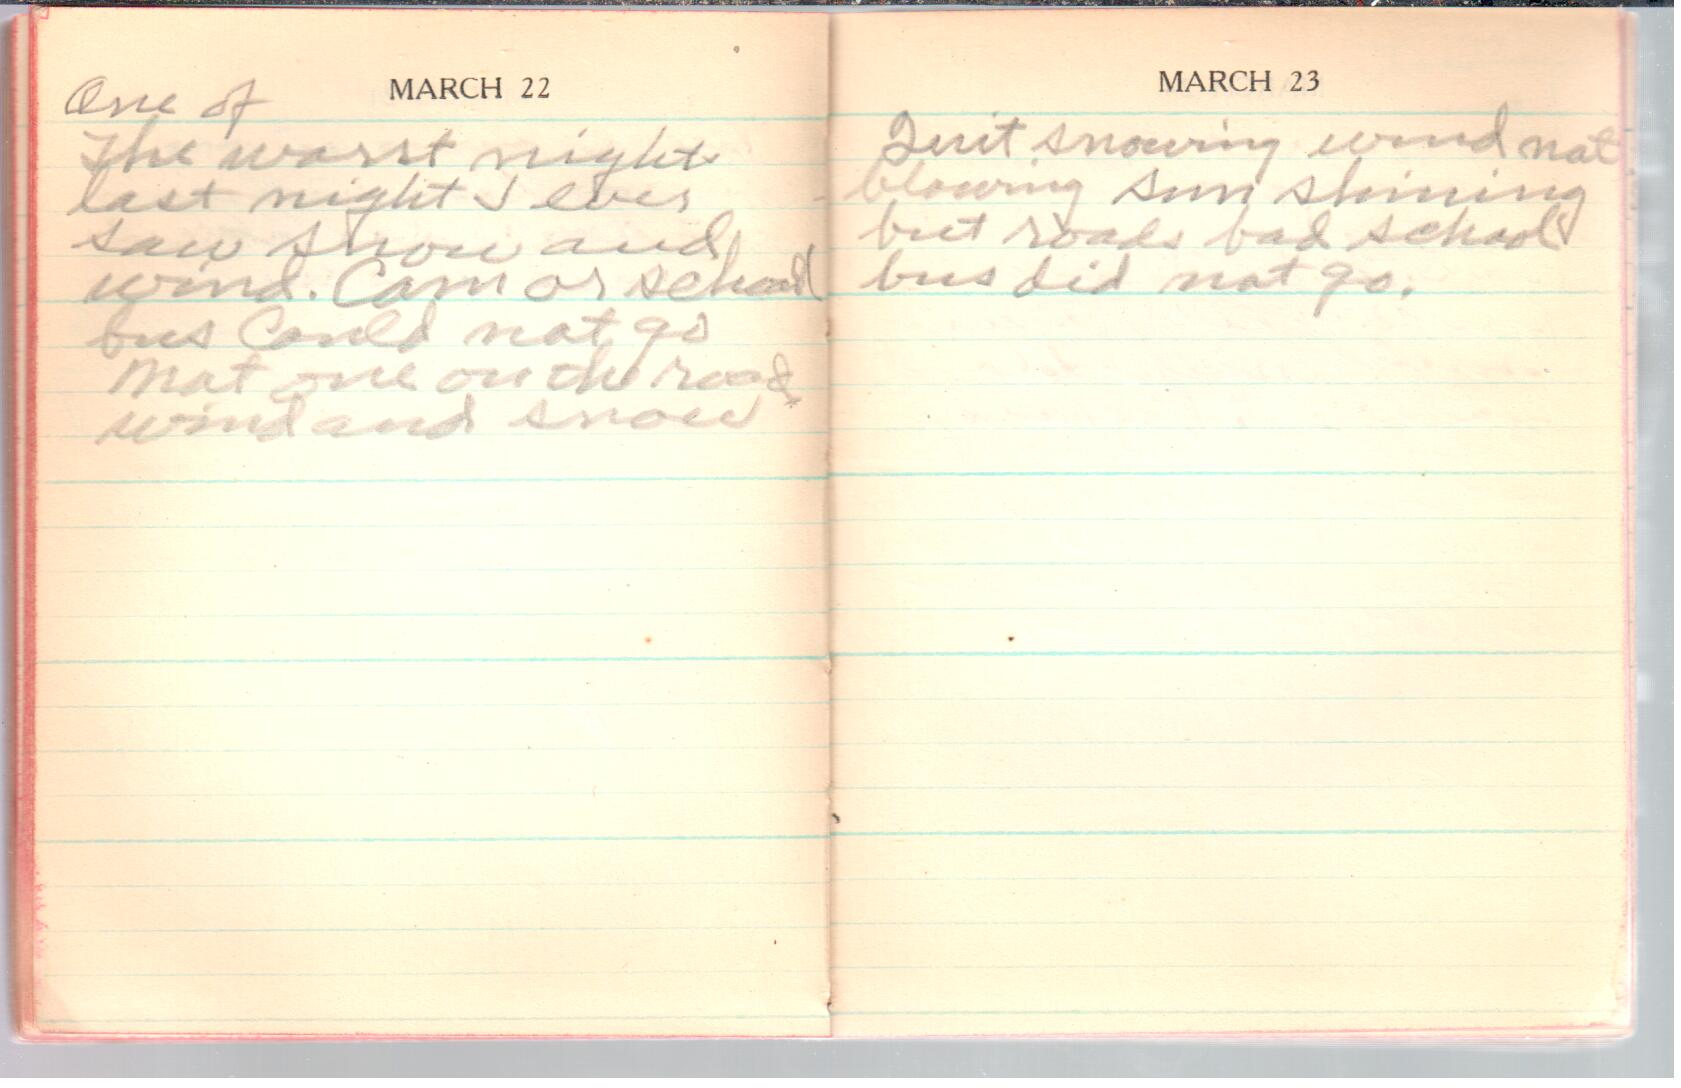 MARCH 22
One of
The worst night
last night I ever
saw snow and
wind. Cam or school
bus Could not go
Not one on the road
wind and snow
MARCH 23
Quit snowing wind not
blowing sun shining
but roads bad school
bus did not go.